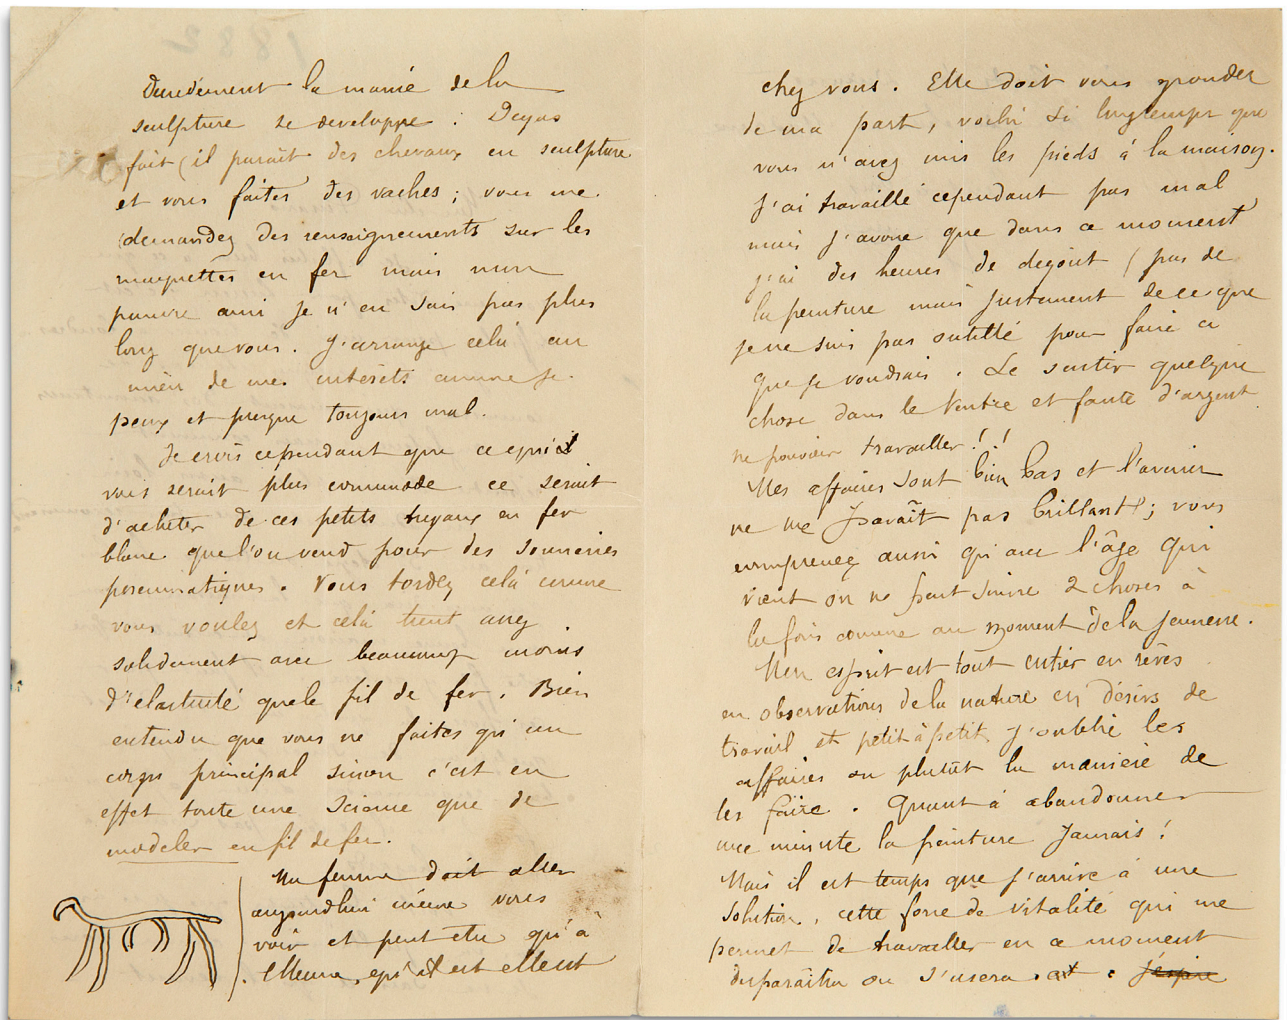 Decidement la manie de la
sculpture se developpe : Degas
fait (il parait des chevaux en sculpture
et vous faites des vaches ; vous me
demandez des renseignements sur les
maquettes en fer mais mon
pauvre ami je n'en sais pas plus
long que vous. J'arrange celà au
mieu de mes intérets comme je
peux et presque toujours mal.
Je crois cependant que ce qui
vous serait plus commode ce serait
d'acheter de ces petits tuyaux en fer
blanc que l'on vend pour des sonneries
pneumatiques. Vous tordez celà comme
vous voulez et celà tient assez
solidement avec beaucoup moins
d'elasticité que le fil de fer. Bien
entendu que vous ne faites qu'un
corps principal sinon c'est en
effet toute une science que de
modeler en fil de fer.
Ma femme doit aller
aujourdhui même vous
voir et peut etre qu'à
l'heure qu'il est elle est
chez vous. Elle doit vous gronder
de ma part, voilà si longtemps que
vous n'avez mis les pieds à la maison.
J'ai travaillé cependant pas mal
mais j'avoue que dans ce moment
j'ai des heures de degout (pas de
la peinture mais justement de ce que
je ne suis pas outillé pour faire ce
que je voudrais. Se sentir quelque
chose dans le ventre et faute d'argent
ne pouvoir travailler !!
Mes affaires sont bien bas et l'avenir
ne me parait pas brillant ; vous
comprenez aussi qu'avec l'âge qui
vient on ne peut suivre 2 choses à
la fois comme au moment de la jeunesse.
Mon esprit est tout entier en rêves
en observations de la nature en désirs de
travail et petit à petit j'oublie les
affaires ou plutôt la manière de
les faire. Quant à abandonner
une minute la peinture Jamais !
Mais il est temps que j'arrive à une
solution, cette force de vitalité qui me
permet de travailler en ce moment
disparaitra ou s'usera